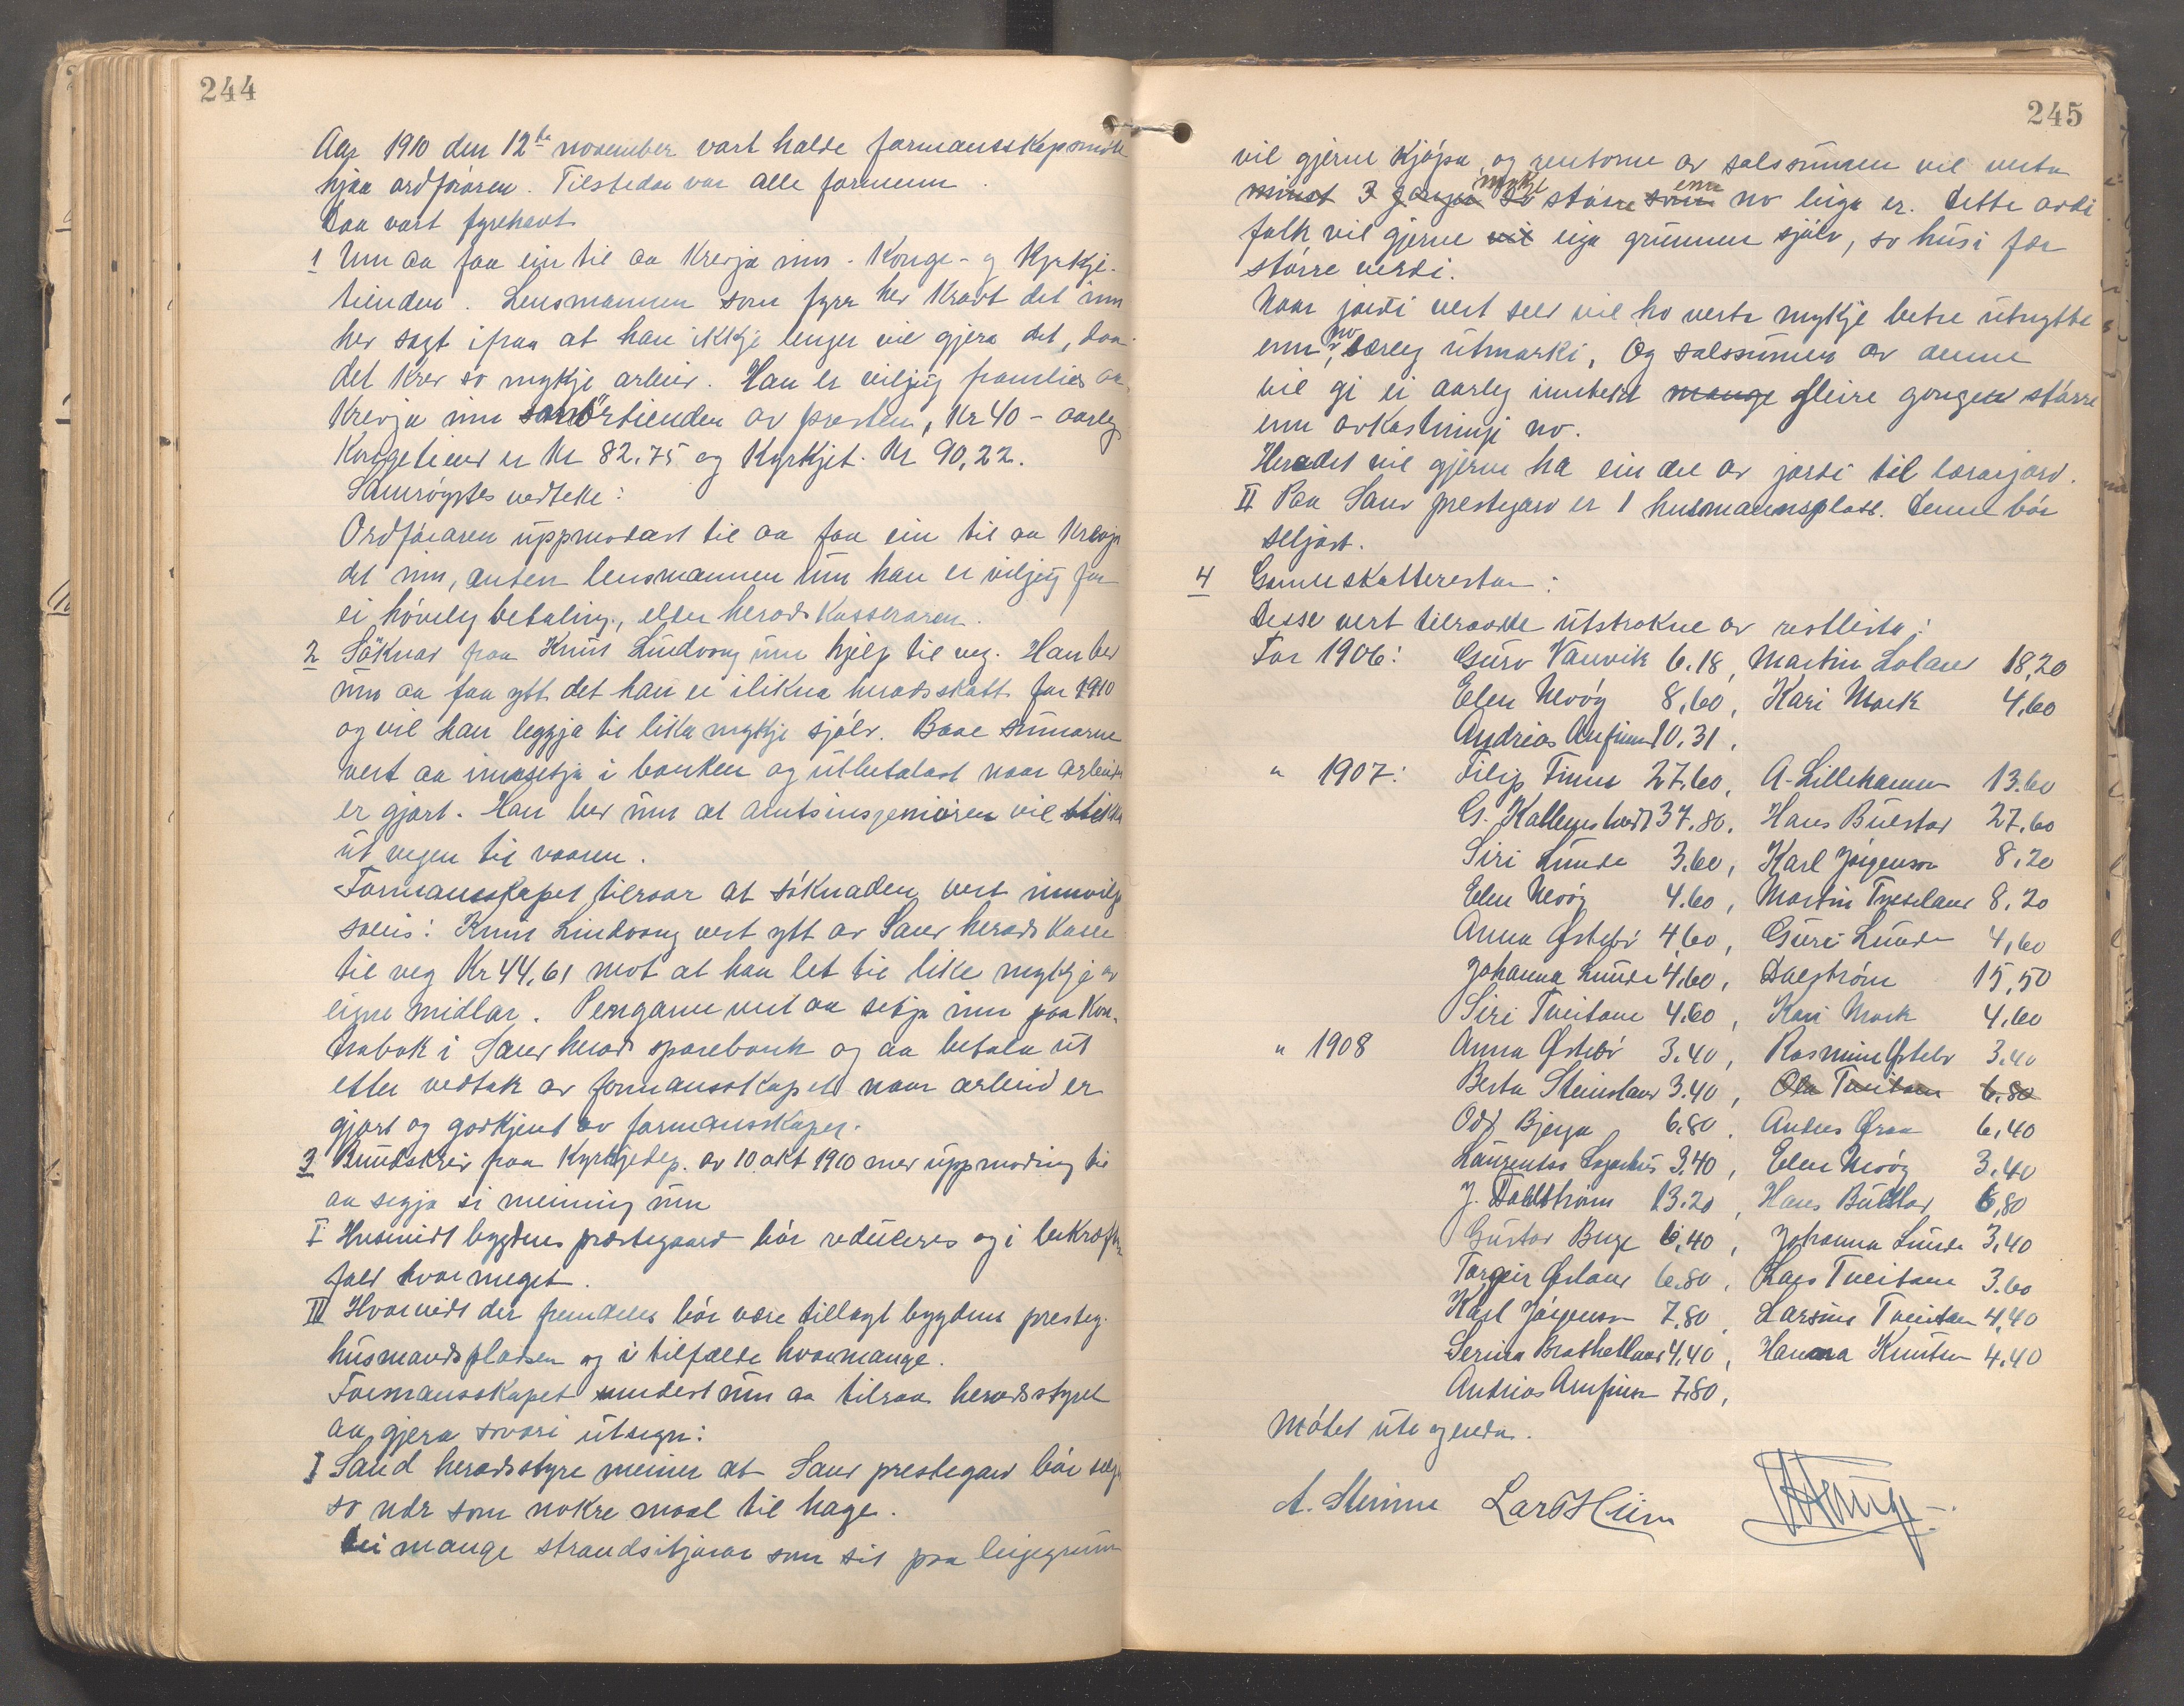 244
Aar 1910 den 12te november vart halde formansskapsmøte
hjaa ordføraren. Tilstedar var alle formenn.
Daa vart fyrehavt
1 Um aa faa ein til aa krevja inn - Konge- og Kyrkje-
tienden. Lensmannen som fyrr hev kravt det inn
hev sagt ifraa at han ikkje lenger vil gjera det, daa
det krev so mykje arbeid. Han er viljug framleis aa
krevja inn smörtienden av presten, Kr 40 - aarleg
Kongetiend er Kr 82.75 og Kyrkjet. Kr 90,22.
Samrøystes vedteke:
Ordføraren uppmodast til aa faa ein til aa krevja
det inn, anten lensmannen um han er viljug for
ei høveleg betaling, eller heradskasseraren.
2 Söknad fraa Knut Lindvang um hjelp til veg. Han ber
um aa faa ytt det han er ilikna heradsskatt for 1910
og vil han leggja til lika mykje sjölv. Baae sumarne
vert aa innsetja i banken og utbetalast naar arbeidet
er gjort. Han ber um at amtsingeniören vil stikka
ut vegen til vaaren.
Formansskapet tilraar at söknaden vert innvilga
soleis: Knut Lindvang vert ytt av Saud heradskasse
til veg Kr 44,61 mot at han let til like mykje av
eigne midlar. Pengarne vert aa setja inn paa Kon-
trabok i Saud herads sparebank og aa betala ut
etter vedtak av formansskapet naar arbeid er
gjort og godkjent av formansskapet.
3 Rundskriv fraa Kyrkjedep. av 10. okt 1910 med uppmoding til
aa segja si meining um
I Hvorvidt bygdens præstegaard bör reduceres og i bekræftende
fald hvormeget.
II Hvorvidt der fremdeles bör være tillagt bygdens presteg.
husmandspladsen og i tilfælde hvormange.
Formansskapet vert um aa tilraa heradsstyret
aa gjera sovori utsegn:
I Saud heradsstyre meiner at Saud prestegard bör seljast
so nær som nokre maal til hage.
Dei mange strandsitjarar som sit paa leigegrunn
245
vil gjerne kjöpa, og rentorne av salssummen vil verta
minst 3 gonger so mykje större som enn no leiga er. Dette avdi
folk vil gjerne vil eiga grunnen sjölv, so husi fær
större verdi.
Naar jordi vert seld vil ho verta mykje betre utnytta
enn no, særleg utmarki, Og salssumen av denne
vil gi ei aarleg inntekt mange fleire gonger större
enn avkastningi no.
Heradet vil gjerne ha ein del av jordi til lærarjord.
II Paa Saud prestegard er 1 husmannsplass. Denne bör
seljast.
4 Gamle skatterestar:
Desse vert tilraadde utstrokne av restlista:
For 1906: Guro Vanvik 6.18, Martin Loland 18,20
Elen Mevög 8,60, Kari Mork 4,60
Andreas Anfinns 10,31.
" 1907: Filip Finn 27.60, A. Lillehammer 13.60
G. Kallemshodt 37.80, Hans Bustad 27.60
Siri Lunde 3.60, Karl Jörgenson 8.20
Elen Mevög 4.60, Martin Tveteland 8.20
Anna Østebö 4,60, Guri Lunde 4,60
Johanna Lunde 4,60, Dalström 15,50
Siri Tveitane 4.60, Kari Mork 4,60
" 1908 Anna Østebö 3.40, Rasmine Østebö 3.40
Berta Steinsland 3.40, Ola Tveitane 6.80
Odd Bjerga 6.80. Anders Øraa 6,40
3.40, Elen Mevög 3.40
J. Dahlström 13.20, Hans Bustad 6,80
Gustav Berge 6,40, Johanna Lunde 3,40
Torgeir Östand 6.80, Lars Tveitane 3.60
Karl Jörgenson 7,80, Larsine Tveitane 4,40
Serina Bratthetland 4,40, Hanna Knutsen 4.40
Andreas Anfinns 7.80,
Mötet ute og enda.
A. Steinum Lars Heim